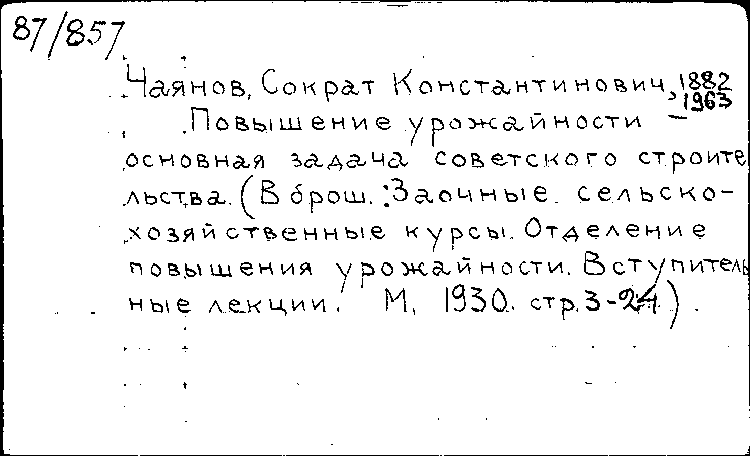 87/857
Чаянов, Сократ Константинович, 1882
- 1963
Повышение урожайности —
основная задача советского строите
льства. (В брош.: Заочные сельско-
хозяйственные курсы. Отделение
повышения урожайности. Вступитель
ные лекции. М. 1930. стр. 3-24).